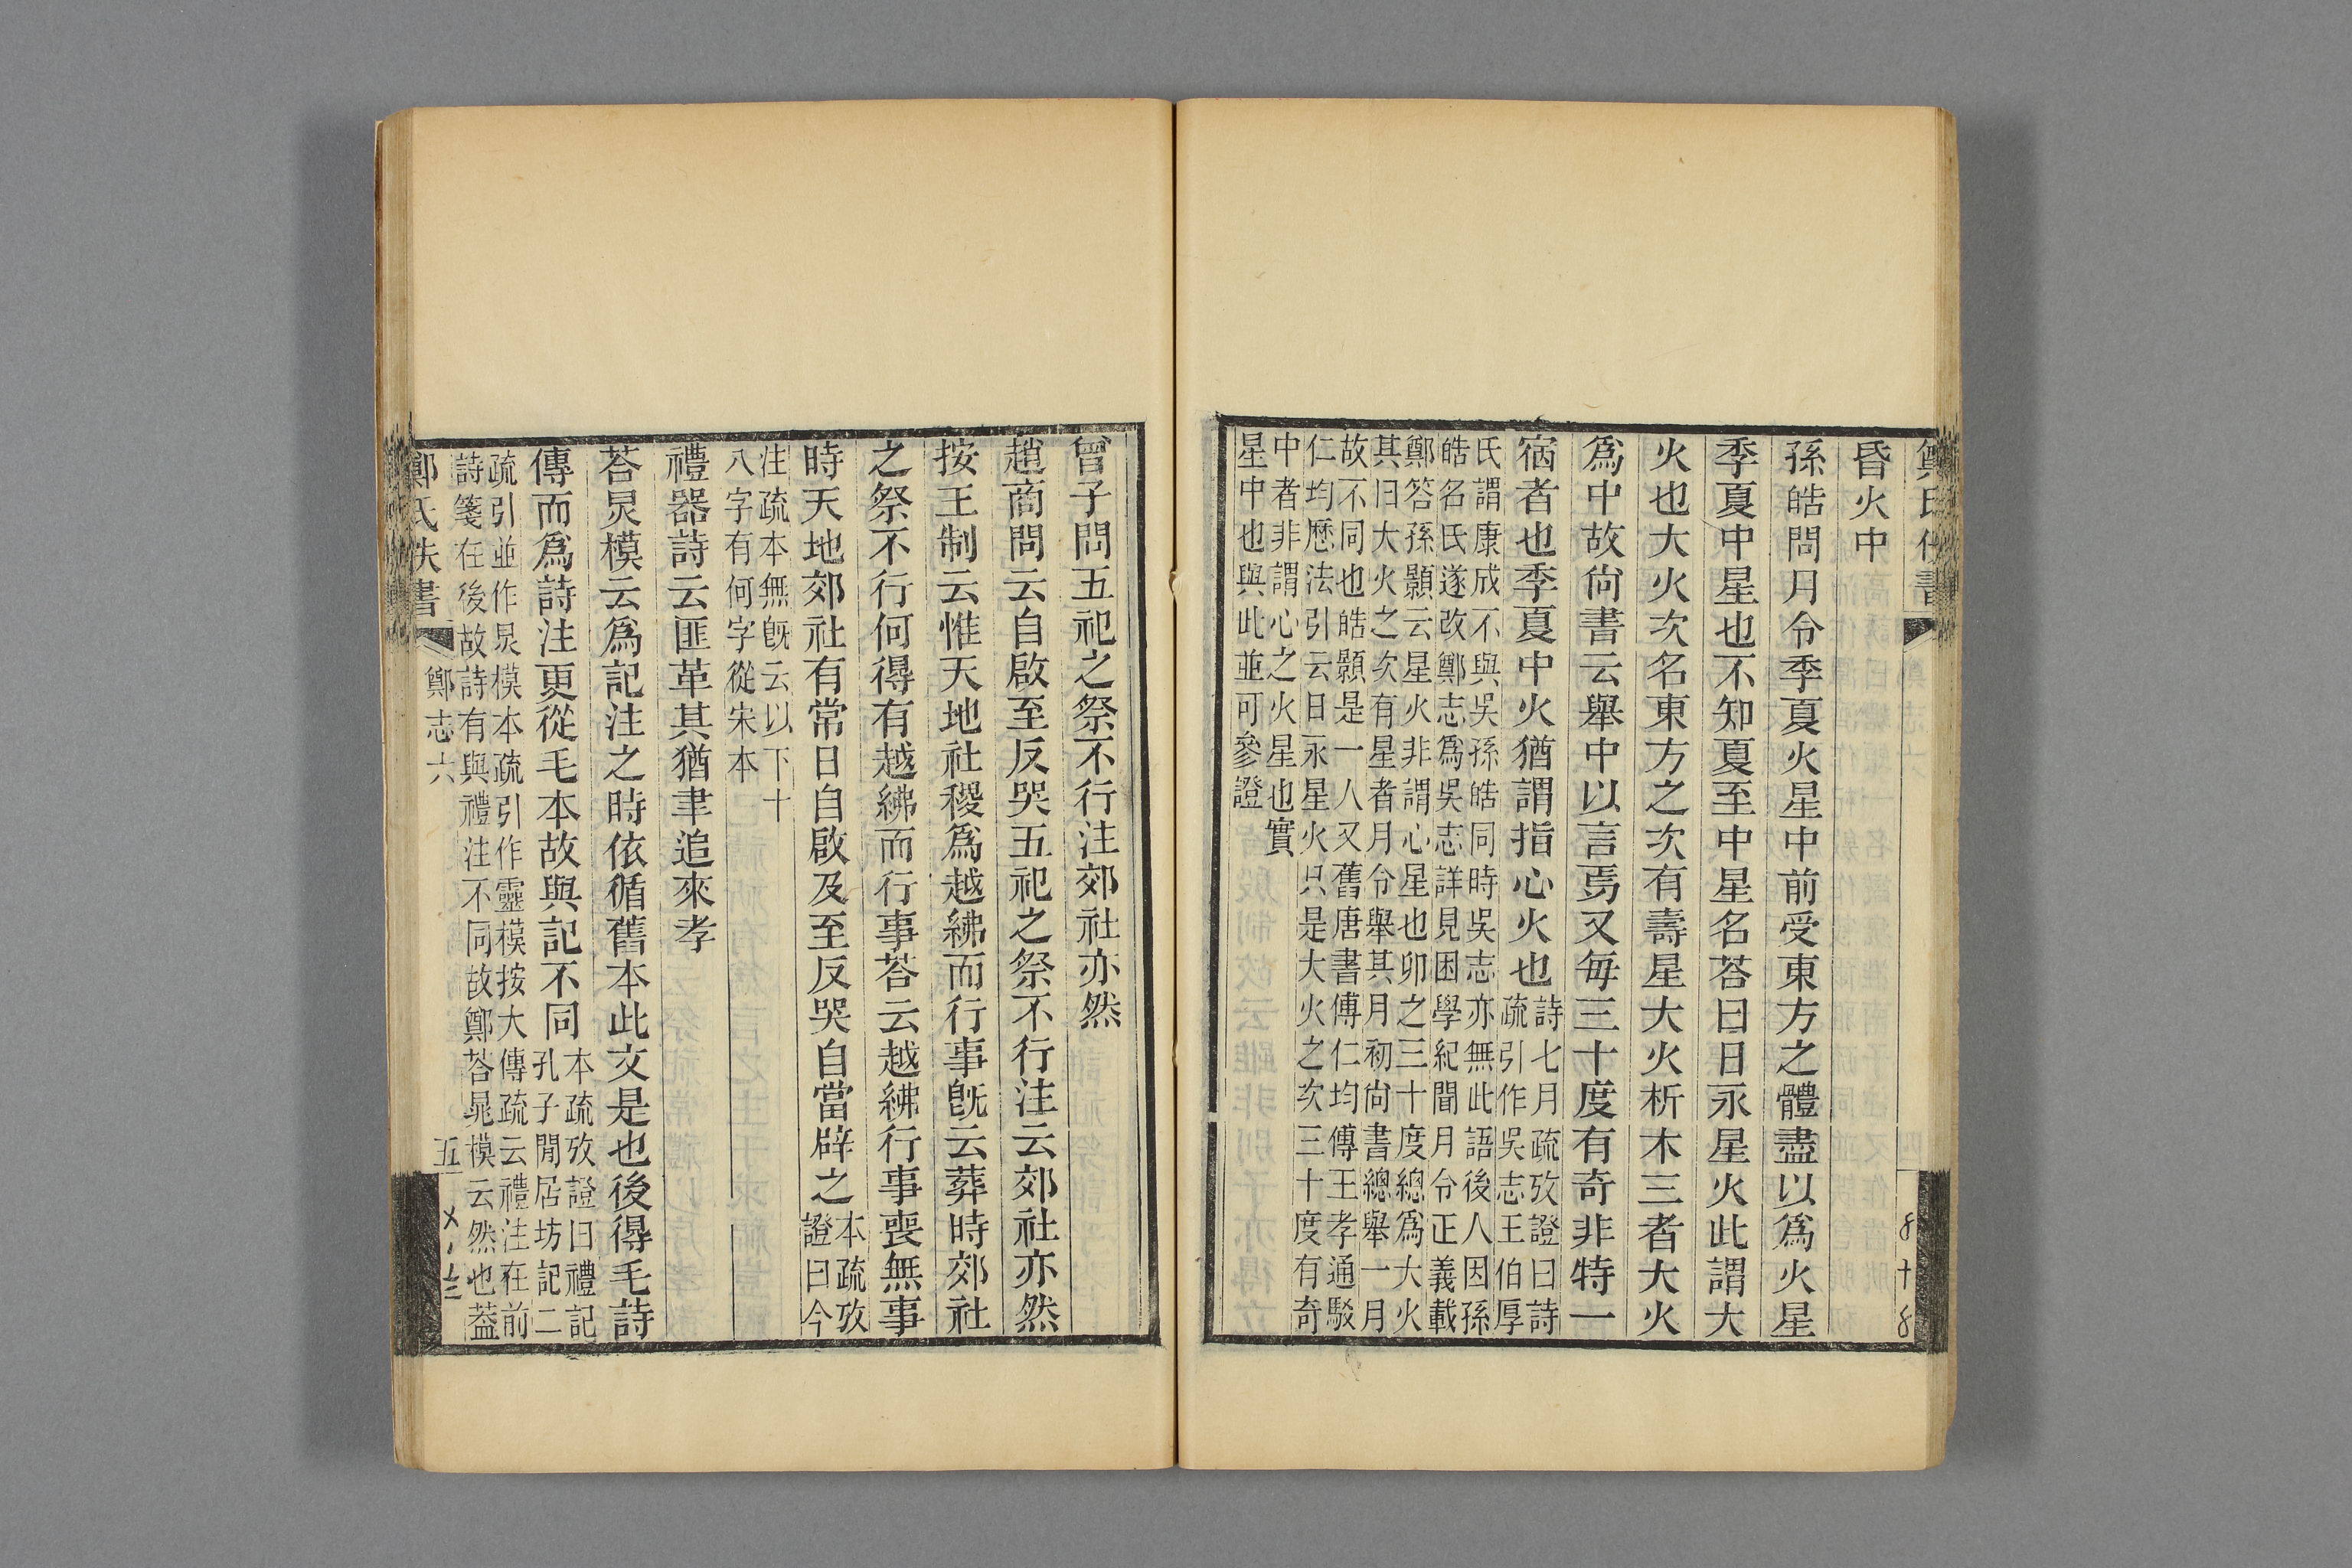 鄭氏佚書
昏火中
孫皓問月令季夏火星中前受東方之體盡以爲火星
季夏中星也不知夏至中星名荅曰日永星火此謂大
火也大火次名東方之次有壽星大火析木三者大火
爲中故尙書云舉中以言焉又每三十度有奇非特一
宿者也季夏中火猶謂指心火也
詩七月疏攷證曰詩
疏引作吳志王伯厚
氏謂康成不與吳孫皓同時吳志亦無此語後人因孫
皓名氏遂改鄭志爲吳志詳見困學紀聞月令正義載
鄭答孫顥云星火非謂心星也卯之三十度總爲大火
其曰大火之次有星者月令舉其月初尙書總舉一月
故不同也皓顥是一人又舊唐書傅仁均傳王孝通駁
仁均歷法引云日永星火只是大火之次三十度有奇
中者非謂心之火星也實
星中也與此並可參證
曾子問五祀之祭不行注郊社亦然
趙商問云自啟至反哭五祀之祭不行注云郊社亦然
按王制云惟天地社稷爲越紼而行事旣云葬時郊社
之祭不行何得有越紼而行事荅云越紼行事喪無事
時天地郊社有常日自啟及至反哭自當辟之
本疏攷
證曰今
注疏本無旣云以下十
八字有何字從宋本
禮器詩云匪革其猶聿追來孝
荅炅模云爲記注之時依循舊本此文是也後得毛詩
傳而爲詩注更從毛本故與記不同
本疏攷證曰禮記
孔子閒居坊記二
疏引並作炅模本疏引作靈模按大傳疏云禮注在前
詩箋在後故詩有與禮注不同故鄭荅晁模云然也葢
鄭氏佚書
鄭志六
五